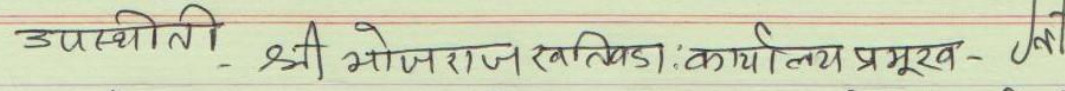 उपस्थीती - श्री भोजराज खतिवडा : कार्यालय प्रमूख -